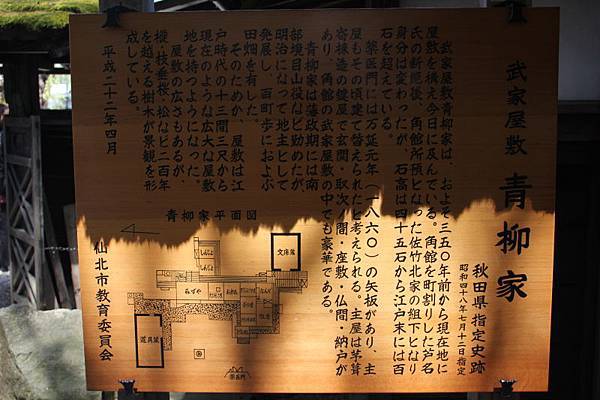 武家屋敷 青柳家
秋田県指定史跡
昭和四十八年七月十二日指定
武家屋敷青柳家は、およそ三五〇年前から現在地に
屋敷を構え今日に及んでいる。角館を町割りした芦名
氏の断絶後、角館所預となった佐竹北家の組下となり
身分は変わったが、石高は四十五石から江戸末には百
石を超えている。
薬医門には万延元年(一八六〇)の矢板があり、主
屋もその頃建て替えられたと考えられる。主屋は茅葺
寄棟造の鍵屋で玄関・取次ノ間・座敷・仏間・納戸が
あり、角館の武家屋敷の中でも豪華である。
青柳家は藩政期には南
部境目山役など勤めたが、
明治になって地主として
発展し、百町歩におよぶ
田畑を有した。
そのためか、屋敷は江
戸時代の十三間三尺から
現在のような広大な屋敷
地を持つようになった。
屋敷の広さもあるが、
樅・枝垂桜・松など二百年
を越える樹木が景観を形
成している。
平成二十二年四月
仙北市教育委員会
青柳家平面図
文庫蔵
みずや
道具蔵
薬医門